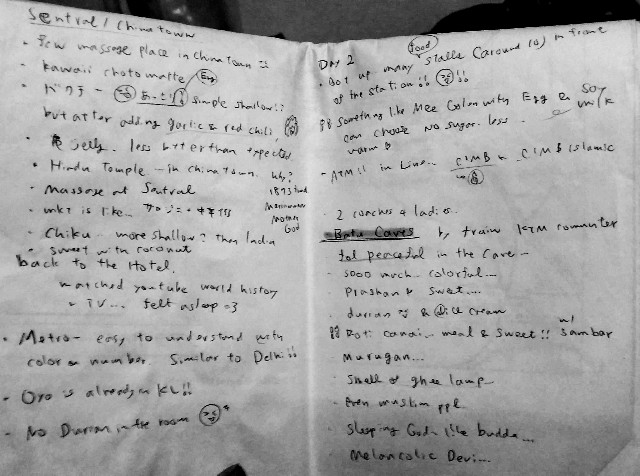 Sentral / Chinatown
• few massage place in Chinatown
• kawaii chotomatte Eng
• バクテ - あっさり simple shallow!?
but after adding garlic & red chili,
jelly. less better than expected.
• Hindu Temple - in chinatown. why?
1873 found
• Massage at Sentral
Mariamman
Mother
God
• mkt is like...
• Chiku - more shallow? then India
• sweet with coconut
back to the Hotel.
watched youtube world history
TV... felt asleep =3
• Metro - easy to understand with
color & number. Similar to Delhi!!
• Oyo is already in KL!!
• No Durian in the room
Day 2
food
• Got up many stalls (around 10) in front
of the station!!
Something like Mee Goleng with Egg & Soy milk
can choose no sugar. less.
warm
• ATM in Line... CIMB & CIMB Islamic
• 2 coaches 4 ladies.
• Batu Caves by train KTM commuter
peaceful in the Cave...
• sooo much colorful...
• Prashan & sweet....
• durian & ice cream
Roti canai... meal & sweet!! w/ Sambar
Murugan...
• Smell of ghee lamp
• Even muslim ppl.
• Sleeping God like budda...
• Melancolic Devi...